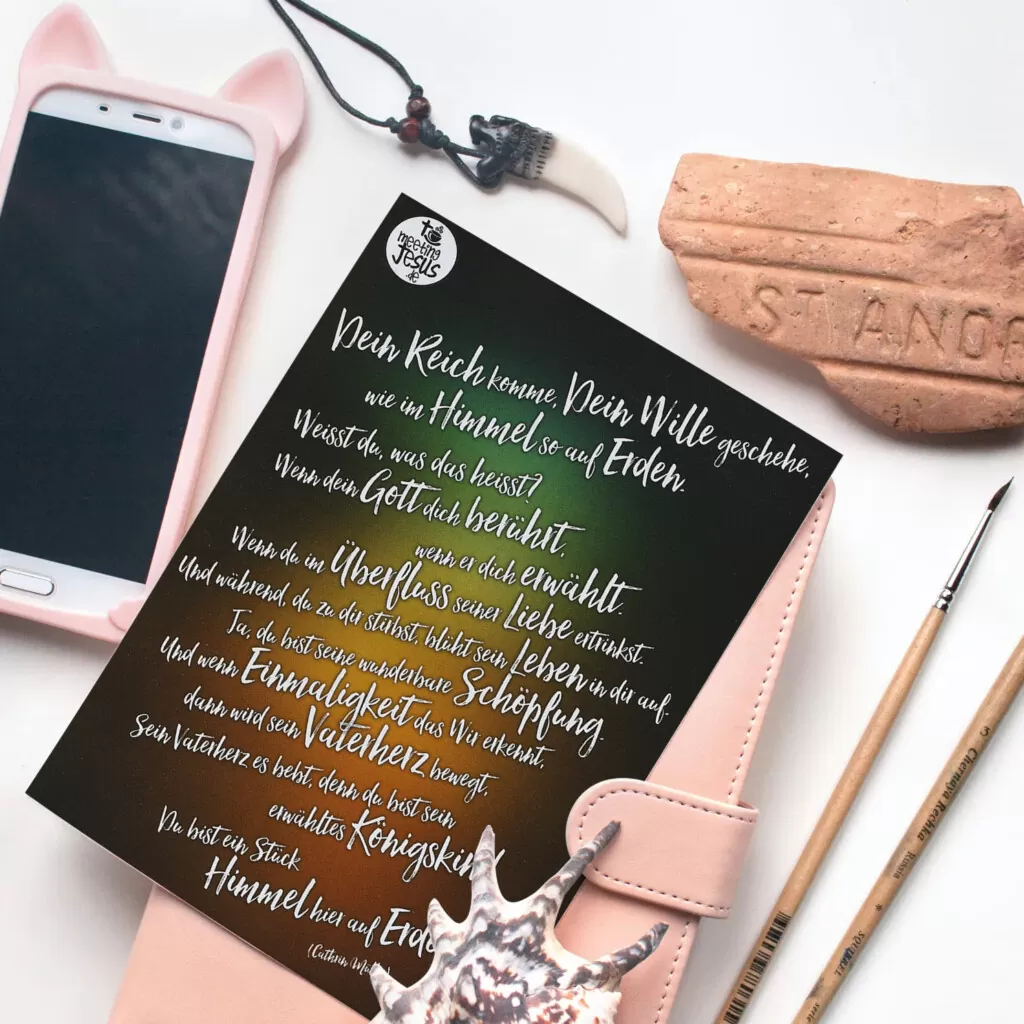 to
meeting
Jesus
.de
Dein Reich komme, Dein Wille geschehe,
wie im Himmel so auf Erden.
Weisst du, was das heisst?
Wenn dein Gott dich berührt,
wenn er dich erwählt.
Wenn du im Überfluss seiner Liebe ertrinkst.
Und während, du zu dir stirbst, blüht sein Leben in dir auf.
Ja, du bist seine wunderbare Schöpfung.
Und wenn Einmaligkeit das Wir erkennt,
dann wird sein Vaterherz bewegt,
Sein Vaterherz es bebt, denn du bist sein
erwähltes Königskind
Du bist ein Stück
Himmel hier auf Erde
(Cathrin
ST ANDR
5 Chernaya Rechka Russia
SQUIRREL